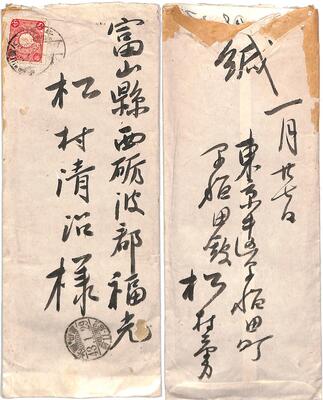 富山縣西砺波郡福光
松村清治様
緘
一月廿七日
東京牛込早稲田町
早稲田館 松村勇